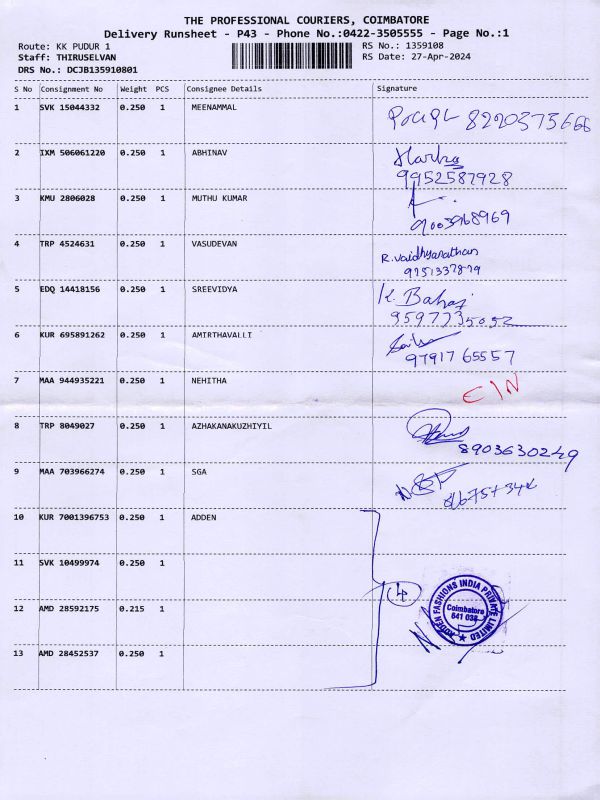 THE PROFESSIONAL COURIERS, COIMBATORE
Delivery Runsheet - P43 - Phone No.:0422-3505555 - Page No.:1
Route: KK PUDUR 1
RS No.: 1359108
Staff: THIRUSELVAN
RS Date: 27-Apr-2024
DRS No.: DCJB135910801
S No Consignment No Weight PCS Consignee Details Signature
1 SVK 15044332 0.250 1 MEENAMMAL 8220373666
2 IXM 506061220 0.250 1 ABHINAV
9952587928
3 KMU 2806028 0.250 1 MUTHU KUMAR
9003968969
4 TRP 4524631 0.250 1 VASUDEVAN R.Vaidhyanathan
5 EDQ 14418156 0.250 1 SREEVIDYA K. Balaji
6 KUR 695891262 0.250 1 AMIRTHAVALLI
9791765557
7 MAA 944935221 0.250 1 NEHITHA
8 TRP 8049027 0.250 1 AZHAKANAKUZHIYIL
8903630249
9 MAA 703966274 0.250 1 SGA
10 KUR 7001396753 0.250 1 ADDEN
11 SVK 10499974 0.250 1
4
12 AMD 28592175 0.215 1
ADDEN FASHIONS INDIA PRIVATE LIMITED
Coimbatore
641 038
13 AMD 28452537 0.250 1